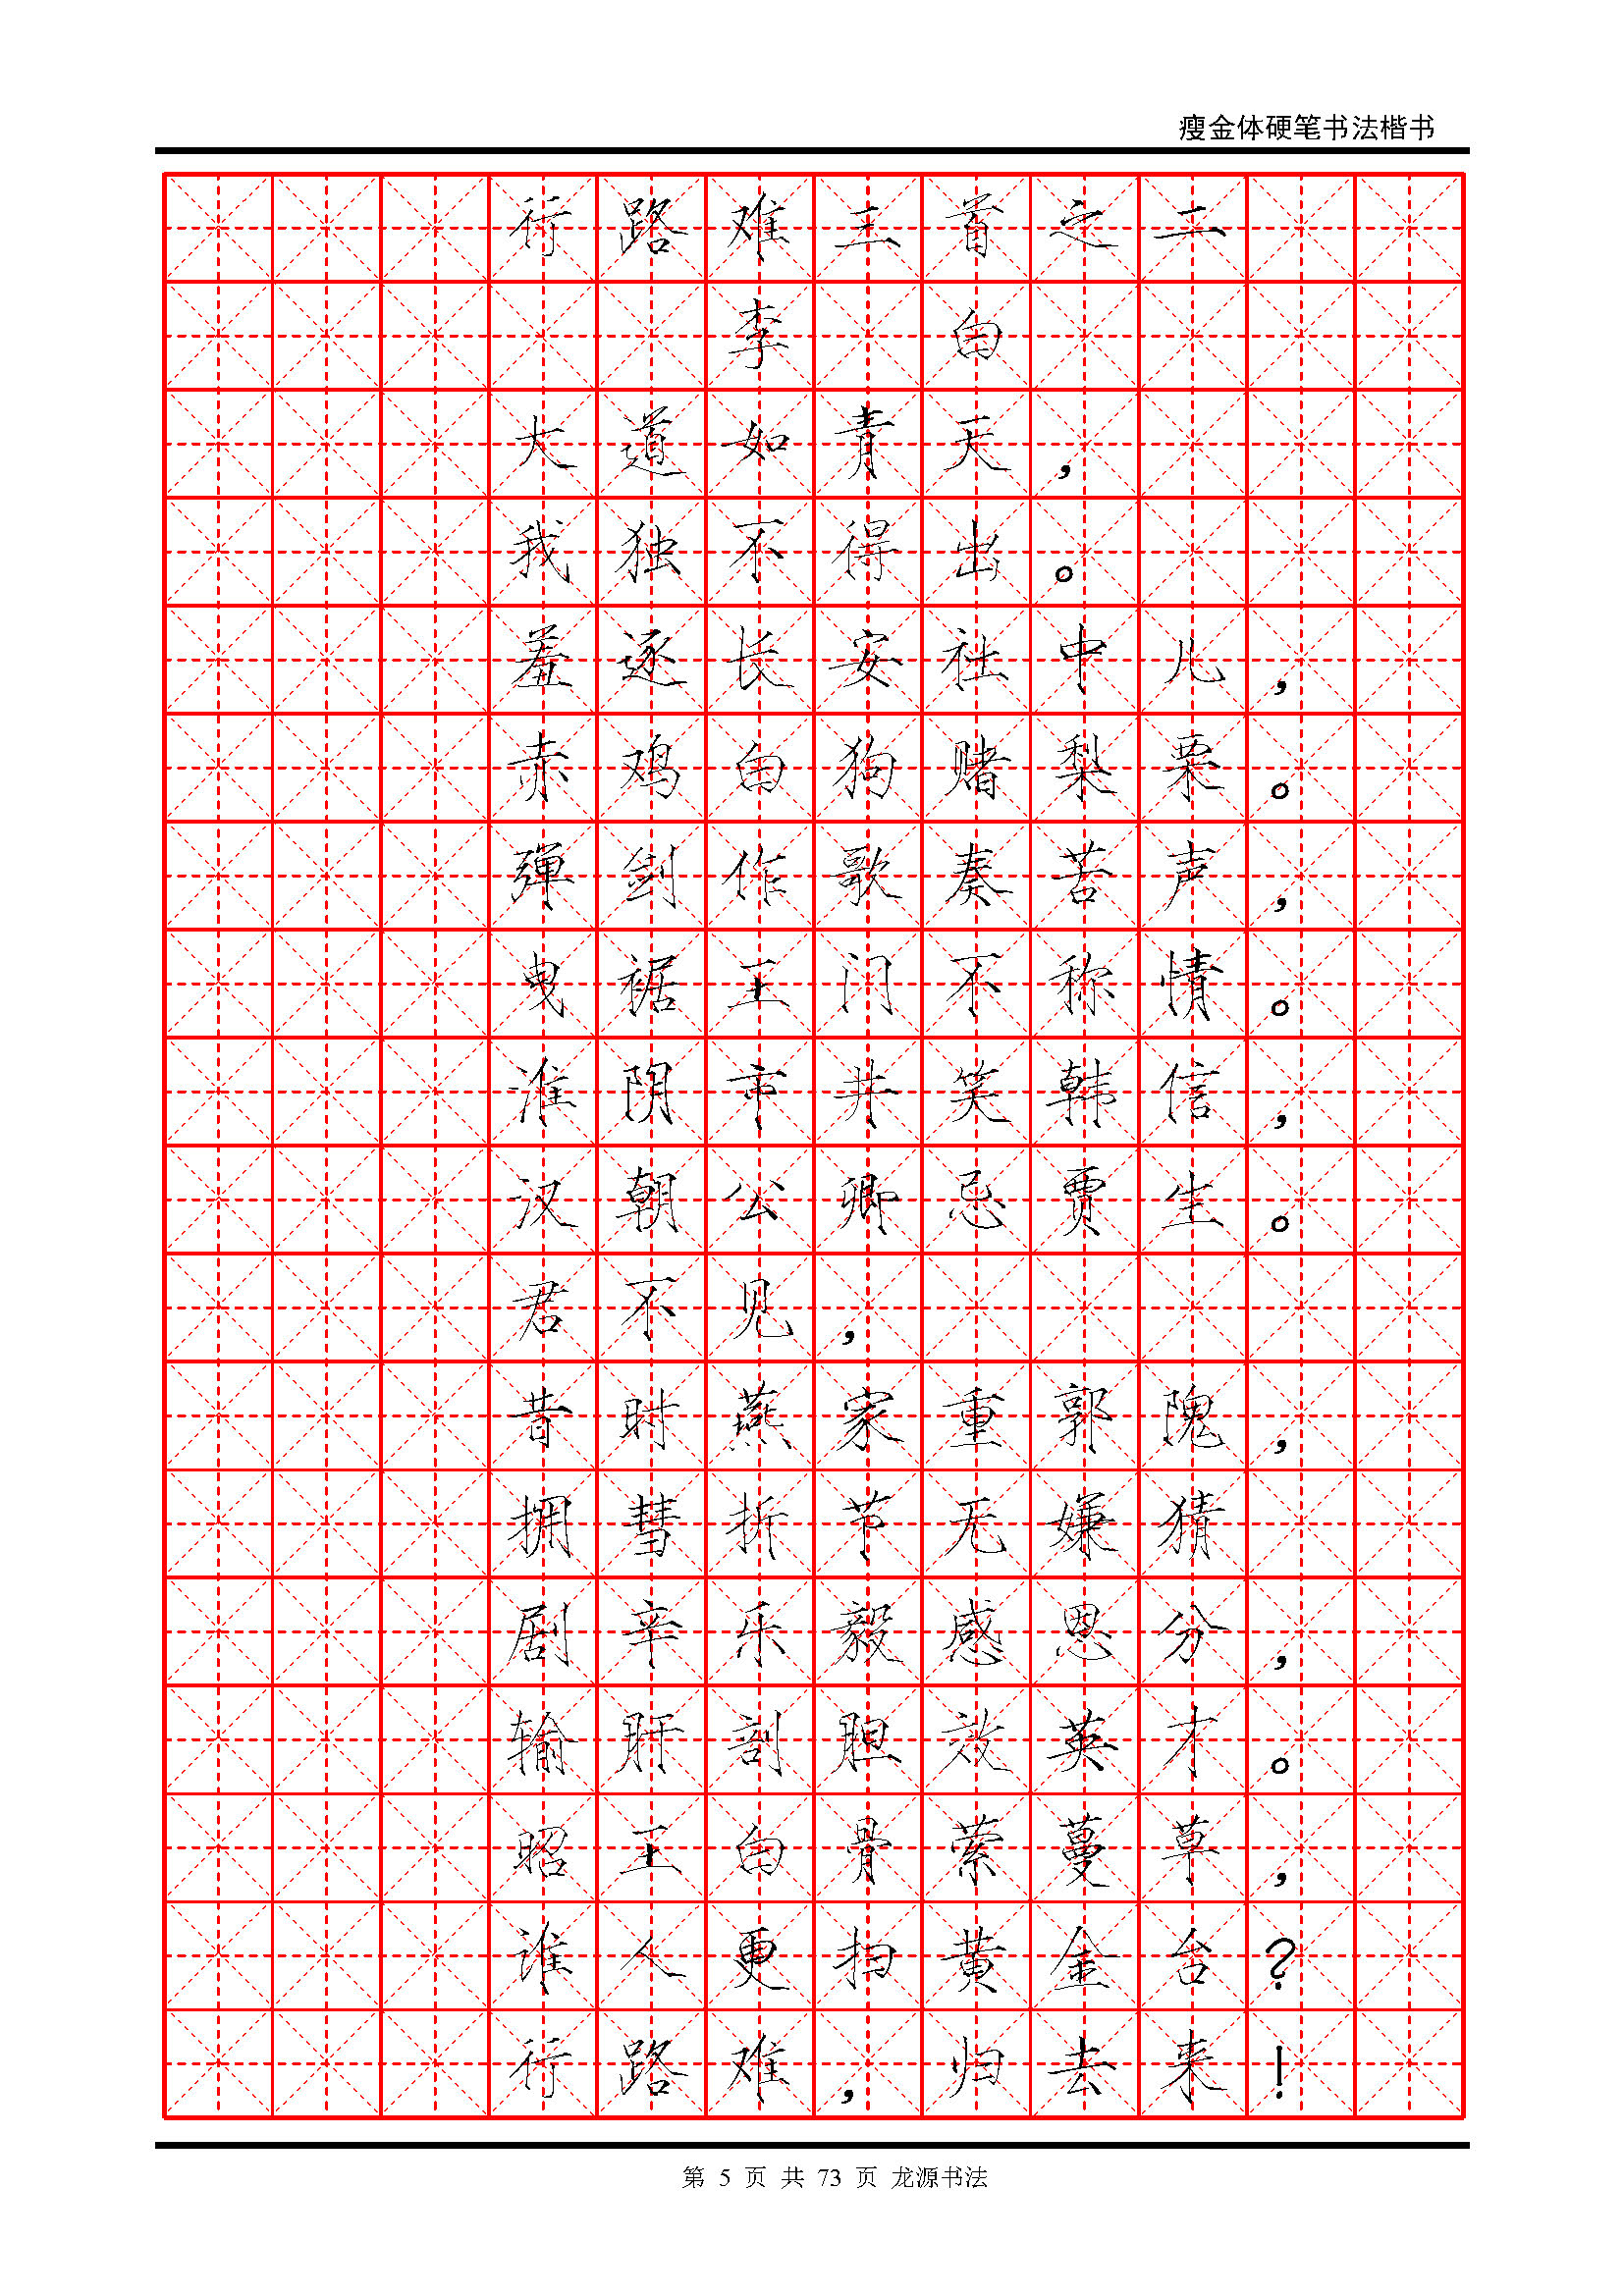 瘦金体硬笔书法楷书
行路难三首之二
李白
大道如青天，
我独不得出。
羞逐长安社中儿，
赤鸡白狗赌梨栗。
弹剑作歌奏苦声，
曳裾王门不称情。
淮阴市井笑韩信，
汉朝公卿忌贾生。
君不见，
昔时燕家重郭隗，
拥彗折节无嫌猜
剧辛乐毅感恩分，
输肝剖胆效英才。
昭王白骨萦蔓草，
谁人更扫黄金台？
行路难，归去来！
第 5 页 共 73 页 龙源书法